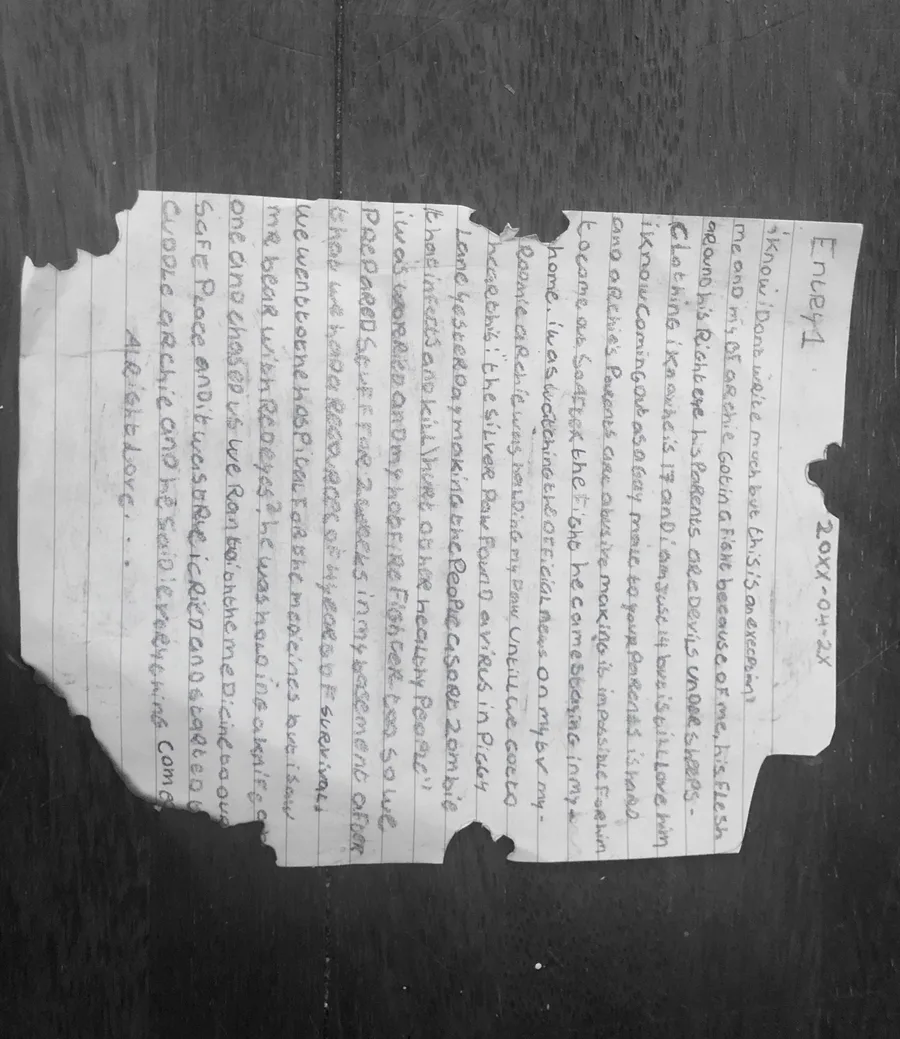 Entry 1
20XX-04-2X
iknow i Dont write much but this is an execpin!
me and my BF archie Got in a fight because of me, his Flesh
around his Right eye his Parents are Devils under sheeps-
Clothing iknow he is 17 and i am just 14 but i still love him
iknow coming out as a gay male to your Parents is hard
and archie's Parents are abusive making is impossible For him
to come out so after the Fight he came staying in my
home. i was watching the official news on my tv my-
Roomie archie was holding my Paw until we got to
heart this "the silver Paw Found a virus in Piggy
Lane yesterday making the People a sort zombie
that infects and kill\hurt other healthy People"
i was worried and my hot fire Fighter too so we
PrePared stuff for 2 weeks in my basement after
that we had resources of years of survival!
we went to the hosPital For the medicines but i saw
mr bear with Red eyes? he was holding a knife
one and chased us we Ran to the medicine to our
safe Place and it was
CUDDLE archie and he said everything